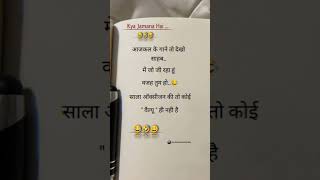 Kya Jamana Hai ...
🤣🤣🤣
आजकल के गाने तो देखो
साहब..
में जो जी रहा हूं
वजह तुम हो..😂
साला ऑक्सीजन की तो कोई
" वैल्यू " ही नही है
😂🤣😂